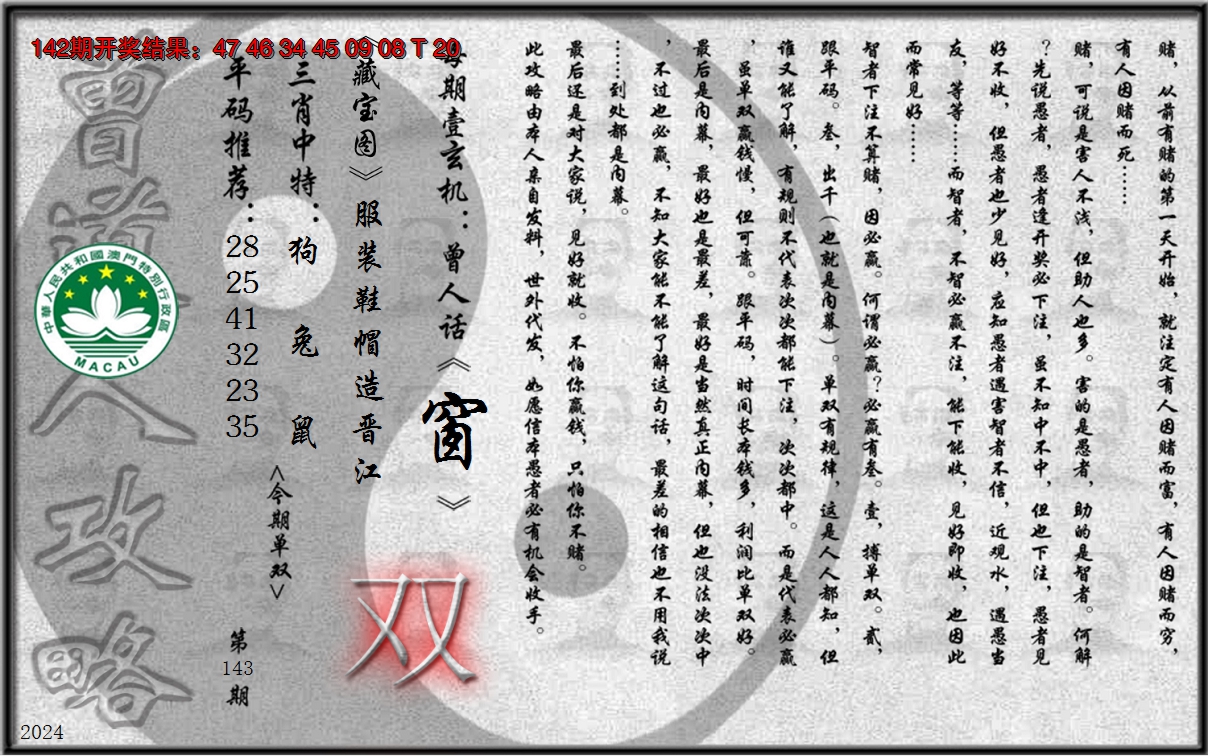 142期开奖结果：47 46 34 45 09 08 T 20
赌，从前有赌的第一天开始，就注定有人因赌而富，有人因赌而穷，
有人因赌而死……
赌，可说是害人不浅，但助人也多。害的是愚者，助的是智者。何解
？先说愚者，愚者逢开奖必下注，虽不知中不中，但也下注，愚者见
好不收，但愚者也少见好，应知愚者遇害智者不信，近观水，遇愚当
友，等等……而智者，不智必赢不注，能下能收，见好即收，也因此
而常见好……
智者下注不算赌，因必赢。何谓必赢？必赢有叁。壹，搏单双。贰，
跟平码。叁，出千（也就是内幕）。单双有规律，这是人人都知，但
谁又能了解，有规则不代表次次都能下注，次次都中。而是代表必赢
，虽单双赢钱慢，但可靠。跟平码，时间长本钱多，利润比单双好。
最后是内幕，最好也是最差，最好是当然真正内幕，但也没法次次中
，不过也必赢，不知大家能不能了解这句话，最差的相信也不用我说
……到处都是内幕。
最后还是对大家说，见好就收。不怕你赢钱，只怕你不赌。
此攻略由本人亲自发料，世外代发，如愿信本愚者必有机会收手。
每期壹玄机：曾人话《窗》
《藏宝图》服装鞋帽造晋江
双
三肖中特：狗 兔 鼠
<今期单双>
平码推荐：28 25 41 32 23 35
第143期
曾道人攻略
中華人民共和國澳門特別行政區
MACAU
2024